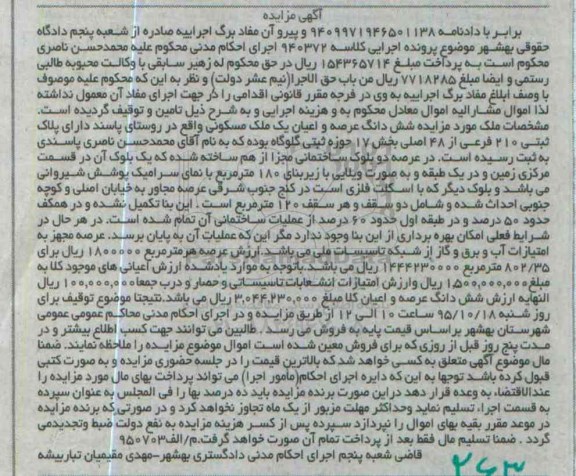 آگهی مزایده
برابر با دادنامه ۹۴۰۹۹۷۱۹۴۶۵۰۱۱۳۸ و پیرو آن مفاد برگ اجراییه صادره از شعبه پنجم دادگاه
حقوقی بهشهر موضوع پرونده اجرایی کلاسه ۹۴۰۳۷۲ اجرای احکام مدنی محکوم علیه محمدحسن ناصری
محکوم است به پرداخت مبلغ ۱۵۴۳۶۵۷۱۴ ریال در حق محکوم له زهیر سابقی با وکالت محبوبه طالبی
رستمی و ایضا مبلغ ۷۷۱۸۲۸۵ ریال من باب حق الاجرا(نیم عشر دولت) و نظر به این که محکوم علیه موصوف
با وصف ابلاغ مفاد برگ اجراییه به وی در فرجه مقرر قانونی اقدامی را در جهت اجرای مفاد آن معمول نداشته
لذا اموال مشارالیه اموال معادل محکوم به و هزینه اجرایی و به شرح ذیل تامین و توقیف گردیده است.
مشخصات ملک مورد مزایده شش دانگ عرصه و اعیان یک ملک مسکونی واقع در روستای پاسند دارای پلاک
ثبتی ۲۱۰ فرعی از ۴۸ اصلی بخش ۱۷ حوزه ثبتی گلوگاه بوده که به نام آقای محمدحسن ناصری پاسندی
به ثبت رسیده است. در عرصه دو بلوک ساختمانی مجزا از هم ساخته شده که یک بلوک آن در قسمت
مرکزی زمین و در یک طبقه و به صورت ویلایی با زیربنای ۱۸۰ مترمربع با نمای سرامیک پوشش شیروانی
می باشد و بلوک دیگر که با اسکلت فلزی است در کنج جنوب شرقی عرصه مجاور به خیابان اصلی و کوچه
جنوبی احداث شده و شامل دو سقف و هر سقف ۱۲۰ مترمربع است . این بنا تکمیل نشده و در همکف
حدود ۵۰ درصد و در طبقه اول حدود ۶۰ درصد از عملیات ساختمانی آن تمام شده است. در هر حال در
شرایط فعلی امکان بهره برداری از این بنا وجود ندارد مگر این که عملیات آن به پایان برسد. عرصه مجهز به
امتیازات آب و برق و گاز از شبکه تاسیسات ملی می باشد.ارزش عرصه هرمترمربع ۱۸۰۰۰۰۰ ریال برای
۸۰۲/۳۵ مترمربع ۱۴۴۴۲۳۰۰۰۰ ریال می باشد.باتوجه به موارد یادشده ارزش اعیانی های موجود کلا به
مبلغ۱,۵۰۰,۰۰۰,۰۰۰ ریال وارزش امتیازات انشعابات تاسیساتی و حصار و درب جمعا۱۰۰,۰۰۰,۰۰۰ ریال
النهایه ارزش شش دانگ عرصه و اعیان کلا مبلغ ۳,۰۴۴,۲۳۰,۰۰۰ ریال می باشد.نتیجتا موضوع توقیف برای
روز شنبه ۹۵/۱۰/۱۸ ساعت ۱۰ الی ۱۲ از طریق مزایده و در اجرای احکام مدنی محاکم عمومی عمومی
شهرستان بهشهر بر اساس قیمت پایه به فروش می رسد. طالبین می توانند جهت کسب اطلاع بیشتر و در
مدت پنج روز قبل از روزی که برای فروش معین شده است اموال موضوع مزایده را ملاحظه نمایند. ضمنا
مال موضوع آگهی متعلق به کسی خواهد شد که بالاترین قیمت را در جلسه حضوری مزایده و به صورت کتبی
قبول کرده باشد توجها به این که دایره اجرای احکام(مامور اجرا) می تواند پرداخت بهای مال مورد مزایده را
عندالاقتضاء به وعده قرار دهد دراین صورت برنده مزایده باید ده درصد بها را فی المجلس به عنوان سپرده
به قسمت اجراء تسلیم نماید وحداکثر مهلت مزبور از یک ماه تجاوز نخواهد کرد و در صورتی که برنده مزایده
در موعد مقرر بقیه بهای اموال را نپردازد سپرده پس از کسر هزینه مزایده به نفع دولت ضبط وتجدیدمی
گردد . ضمنا تسلیم مال فقط بعد از پرداخت تمام آن صورت خواهد گرفت.م/الف۹۵۰۷۰۳
قاضی شعبه پنجم اجرای احکام مدنی دادگستری بهشهر-مهدی مقیمیان تباربیشه
۲۶۳